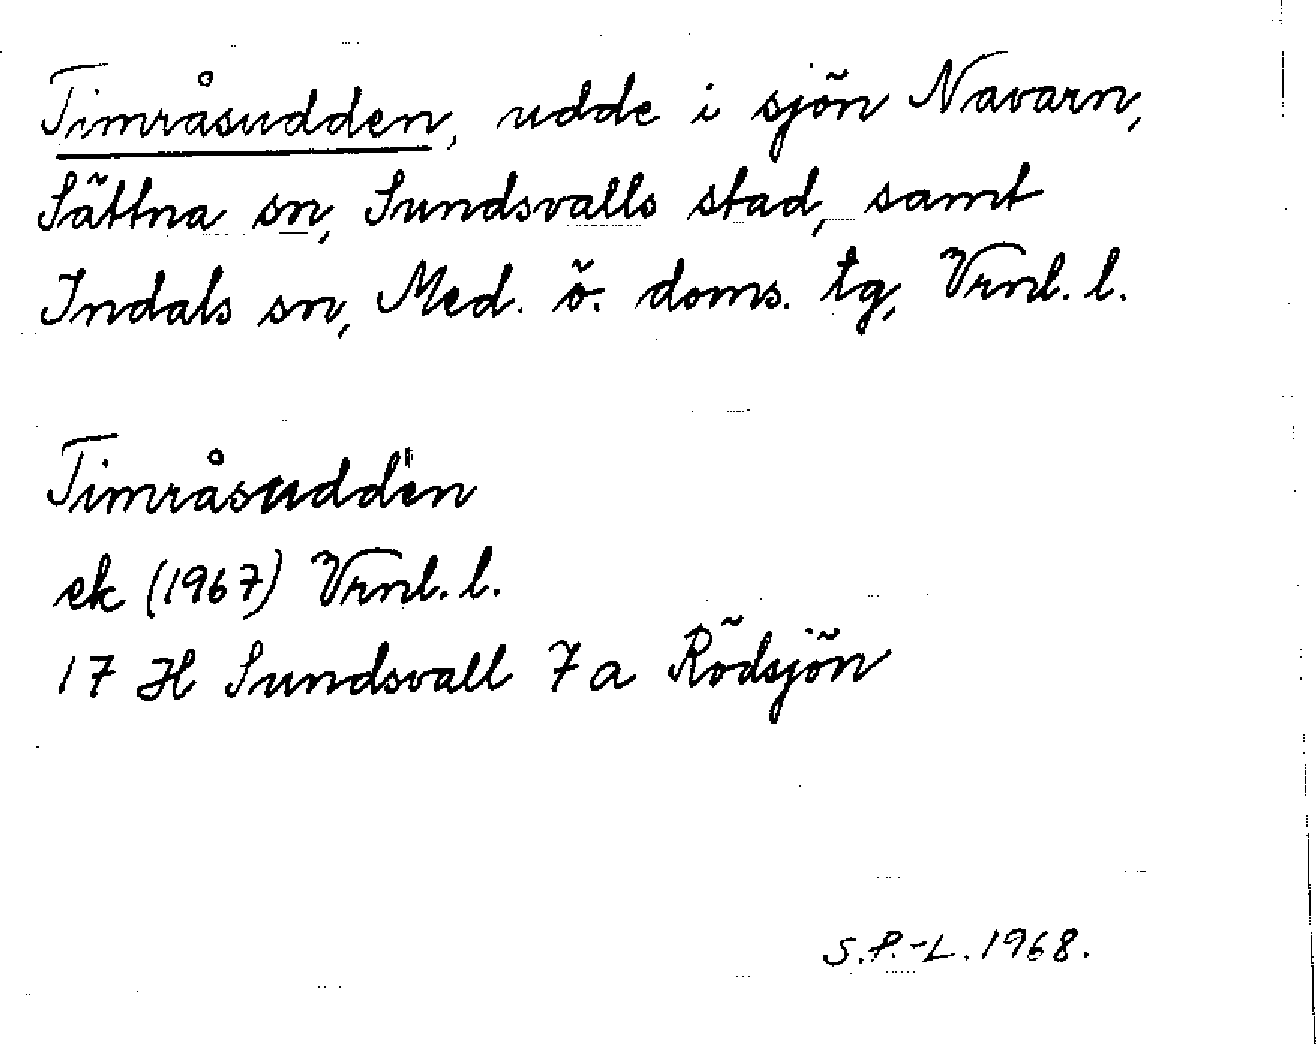 Timråsudden, udde i sjön Navarn,
Sättna sn, Sundsvalls stad, samt
Indals sn, Med. ö. doms. tg, Vrnl. l.
Timråsudden
ek (1967) Vrnl. l.
17 H Sundsvall 7a Rödsjön
S.P.-L. 1968.